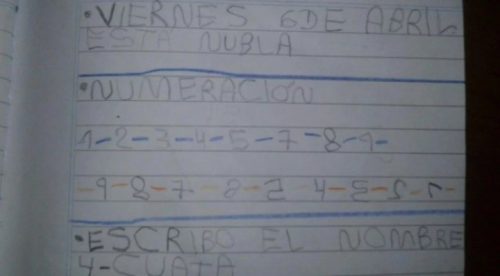 •VIERNES 6 DE ABRIL
ESTA NUBLA
•NUMERACION
1-2-3-4-5-7-8-9-
-9-8-7-6-5-4-3-2-1-
•ESCRIBO EL NOMBRE
4-CUATA